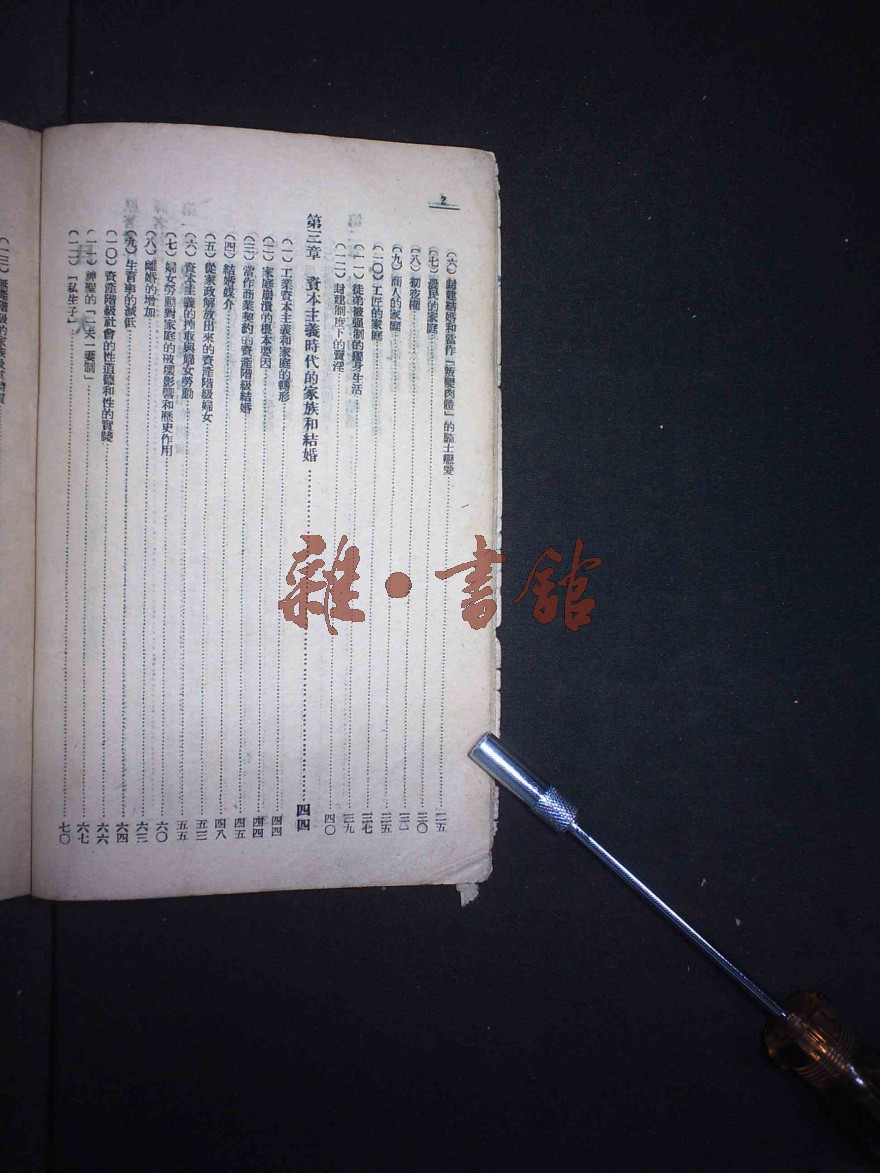 2
(六)封建結婚和當作「叛變肉體」的騎士戀愛……二五
(七)農民的家庭……三〇
(八)初夜權……三一
(九)商人的家庭……三五
(一〇)工匠的家庭……三七
(一一)徒弟被强制的獨身生活……三九
(一二)封建制度下的賣淫……四〇
第三章 資本主義時代的家族和結婚……四四
(一)工業資本主義和家庭的轉形……四四
(二)家庭崩潰的根本要因……四四
(三)當作商業契約的資產階級結婚……四五
(四)結婚媒介……四八
(五)從家政解放出來的資產階級婦女……五三
(六)資本主義的搾取與婦女勞動……五五
(七)婦女勞動對家庭的破壞影響和歷史作用……六〇
(八)離婚的增加……六三
(九)生育率的減低……六四
(一〇)資產階級社會的性道德和性的實踐……六六
(一一)神聖的「一夫一妻制」……六七
(一二)「私生子」……七〇
(一三)無產階級的家族
雜·書館